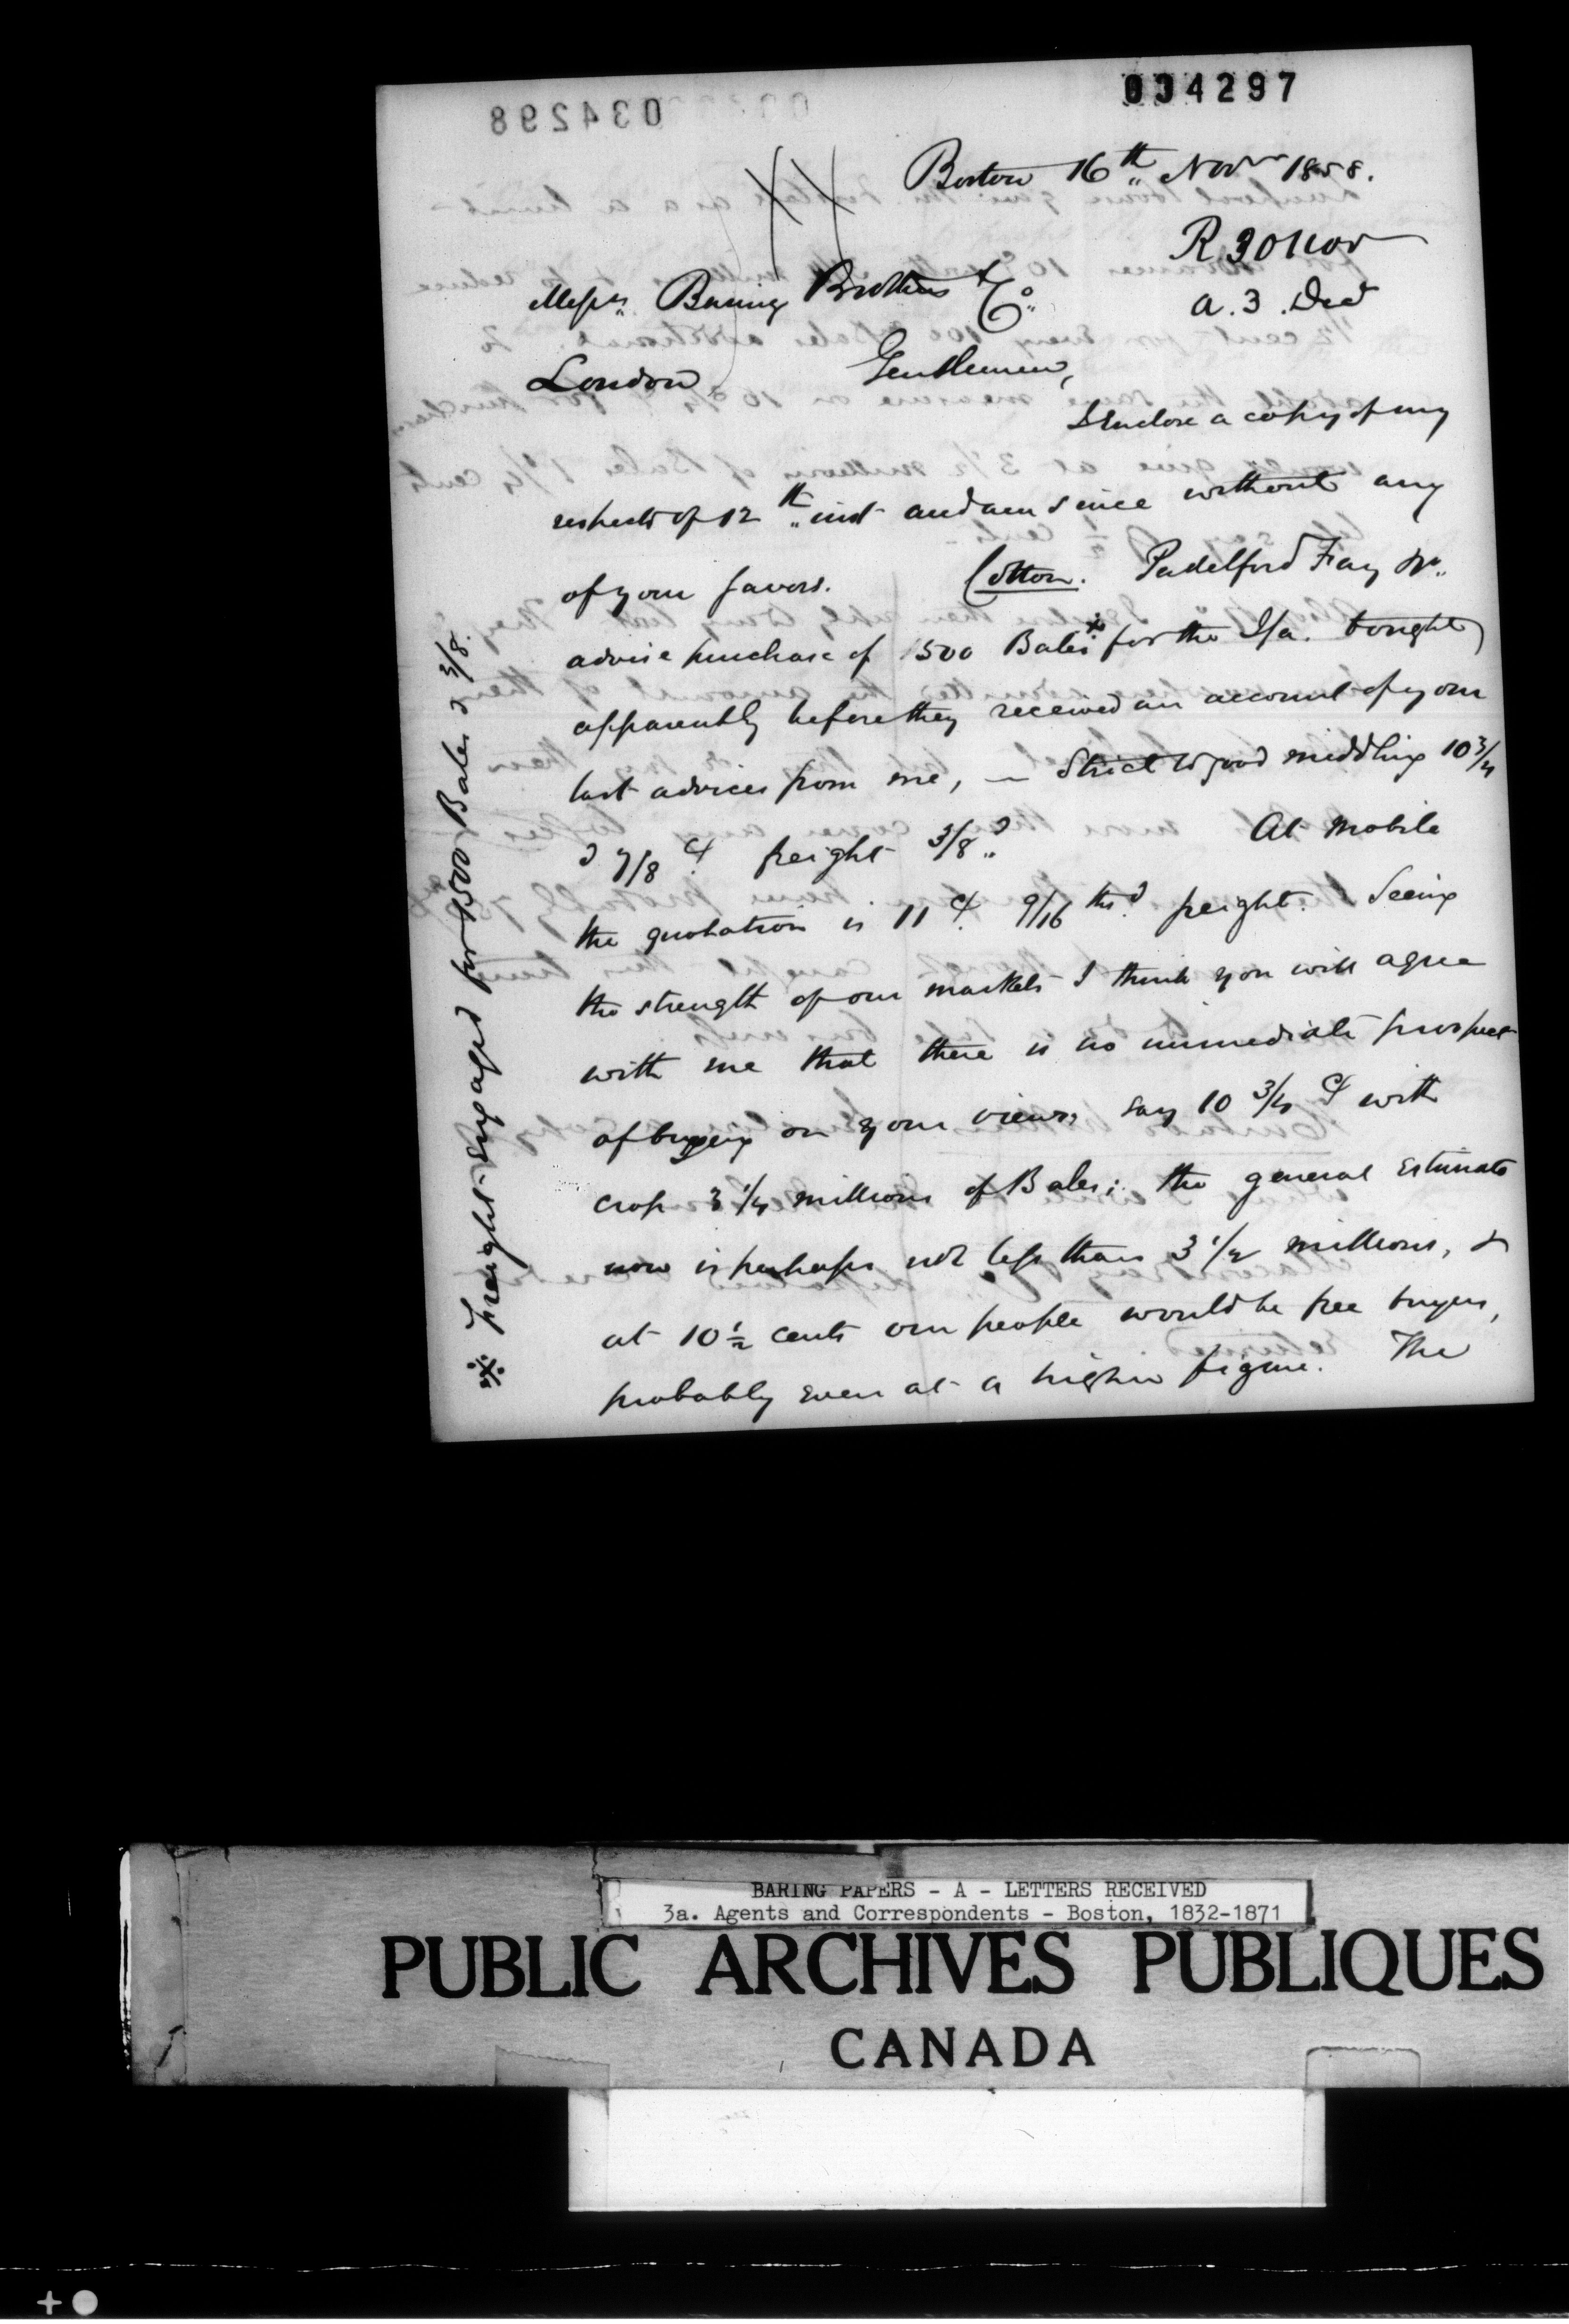 034297
034298
Boston 16th Novr 1858.
R. 30 Nov
a. 3. Dec
Messrs. Baring Brothers & Co.
London Gentlemen,
I enclose a copy of my
respects of 12th inst and am since without any
of your favors. Cotton. Padelford Fay &c.
advise purchase of 1500 Bales※ for the J/a. bought
apparently before they received an account of your
last advices from me, — Strict to good middling 10 3/4
@ 7/8 c/. freight 3/8 d.
At Mobile
the quotation is 11 c/. 9/16 ths d. freight. Seeing
the strength of our markets I think you will agree
with me that there is no immediate prospect
of buying on your views, say 10 3/4 c/ with
crop 3 1/4 millions of Bales; the general estimate
now is perhaps not less than 3 1/2 millions, &
at 10 1/2 cents our people would be free buyers,
probably even at a higher figure. The
※ freight engaged for 1500 Bales @ 3/8.
BARING PAPERS - A - LETTERS RECEIVED
3a. Agents and Correspondents - Boston, 1832-1871
PUBLIC ARCHIVES PUBLIQUES
CANADA